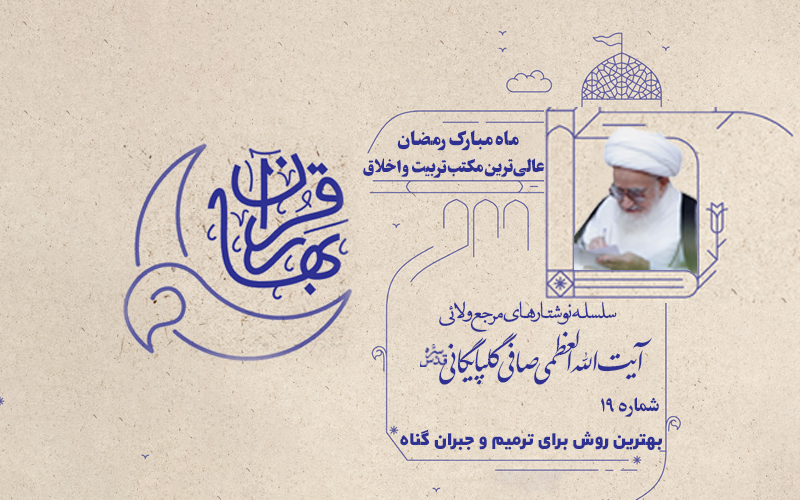 ماه مبارک رمضان
عالی‌ترین مکتب تربیت و اخلاق
بهار قرآن
سلسله نوشتارهای مرجع ولائی
آیت الله العظمی صافی گلپایگانی قدس سره
شماره ۱۹
بهترین روش برای ترمیم و جبران گناه